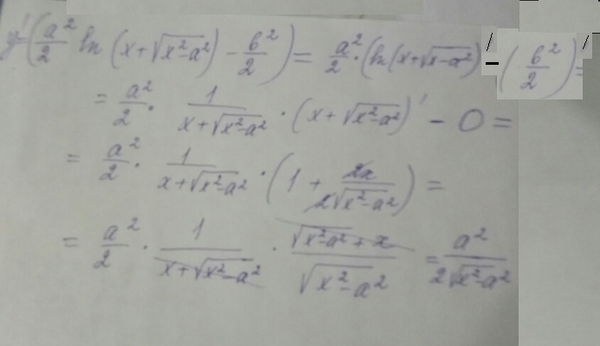 y'=(a²/2 ln(x+√(x²-a²)) - b²/2)' = a²/2·(ln(x+√(x-a²))' - (b²/2)' =
= a²/2 · 1/(x+√(x²-a²)) · (x+√(x²-a²))' - 0 =
= a²/2 · 1/(x+√(x²-a²)) · (1 + 2x/(2√(x²-a²))) =
= a²/2 · 1/(x+√(x²-a²)) · (√(x²-a²)+x)/√(x²-a²) = a²/(2√(x²-a²))